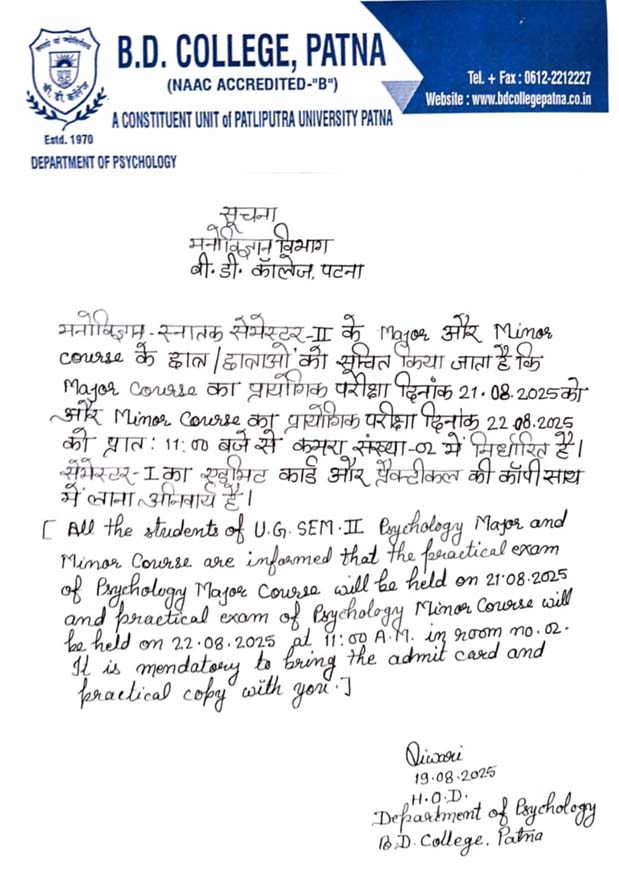 B.D. COLLEGE, PATNA
(NAAC ACCREDITED-"B")
A CONSTITUENT UNIT of PATLIPUTRA UNIVERSITY PATNA
Tel. + Fax : 0612-2212227
Website : www.bdcollegepatna.co.in
Estd. 1970
DEPARTMENT OF PSYCHOLOGY
सूचना
मनोविज्ञान विभाग
बी. डी. कॉलेज, पटना
मनोविज्ञान - स्नातक सेमेस्टर-II के Major और Minor
course के छात्र/छात्राओं को सूचित किया जाता है कि
Major Course का प्रायोगिक परीक्षा दिनांक 21.08.2025 को
और Minor Course का प्रायोगिक परीक्षा दिनांक 22.08.2025
को प्रात: 11:00 बजे से कमरा संख्या-02 में निर्धारित है।
सेमेस्टर-I का एडमिट कार्ड और प्रैक्टीकल की कॉपी साथ
में लाना अनिवार्य है।
[ All the students of U.G. SEM.II Psychology Major and
Minor Course are informed that the practical exam
of Psychology Major Course will be held on 21.08.2025
and practical exam of Psychology Minor Course will
be held on 22.08.2025 at 11:00 A.M. in room no. 02.
It is mendatory to bring the admit card and
practical copy with you.]
19.08.2025
H.O.D.
Department of Psychology
B.D. College, Patna